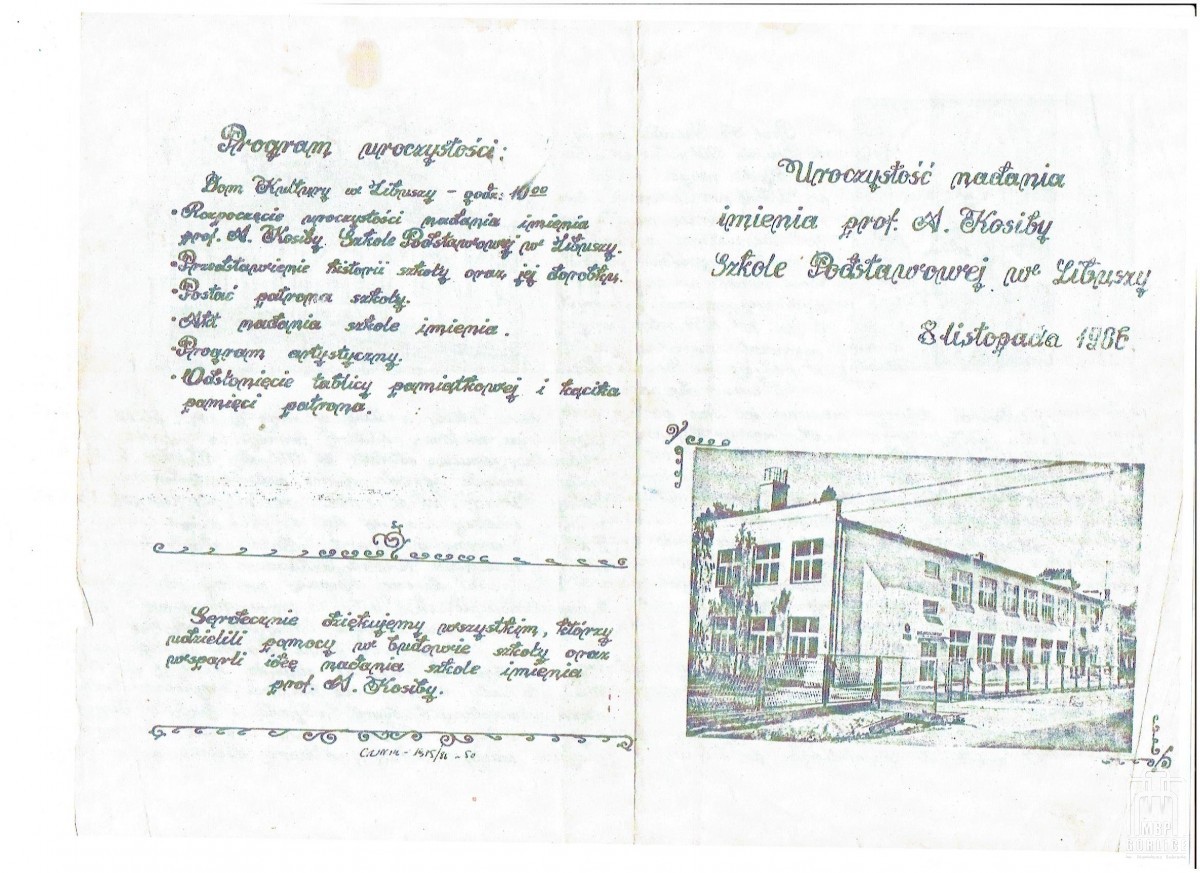 Program uroczystości:
Dom Kultury w Libuszy - godz: 10⁰⁰
• Rozpoczęcie uroczystości nadania imienia
prof. A. Kosiby Szkole Podstawowej w Libuszy.
• Przedstawienie historii szkoły oraz jej dorobku.
• Postać patrona szkoły.
• Akt nadania szkole imienia.
• Program artystyczny.
• Odsłonięcie tablicy pamiątkowej i kącika
pamięci patrona
Serdecznie dziękujemy wszystkim, którzy
udzielili pomocy w budowie szkoły oraz
wsparli ideę nadania szkole imienia
prof. A. Kosiby.
Uroczystość nadania
imienia prof. A. Kosiby
Szkole Podstawowej w Libuszy
8 listopada 1986.
MBP
GORLICE